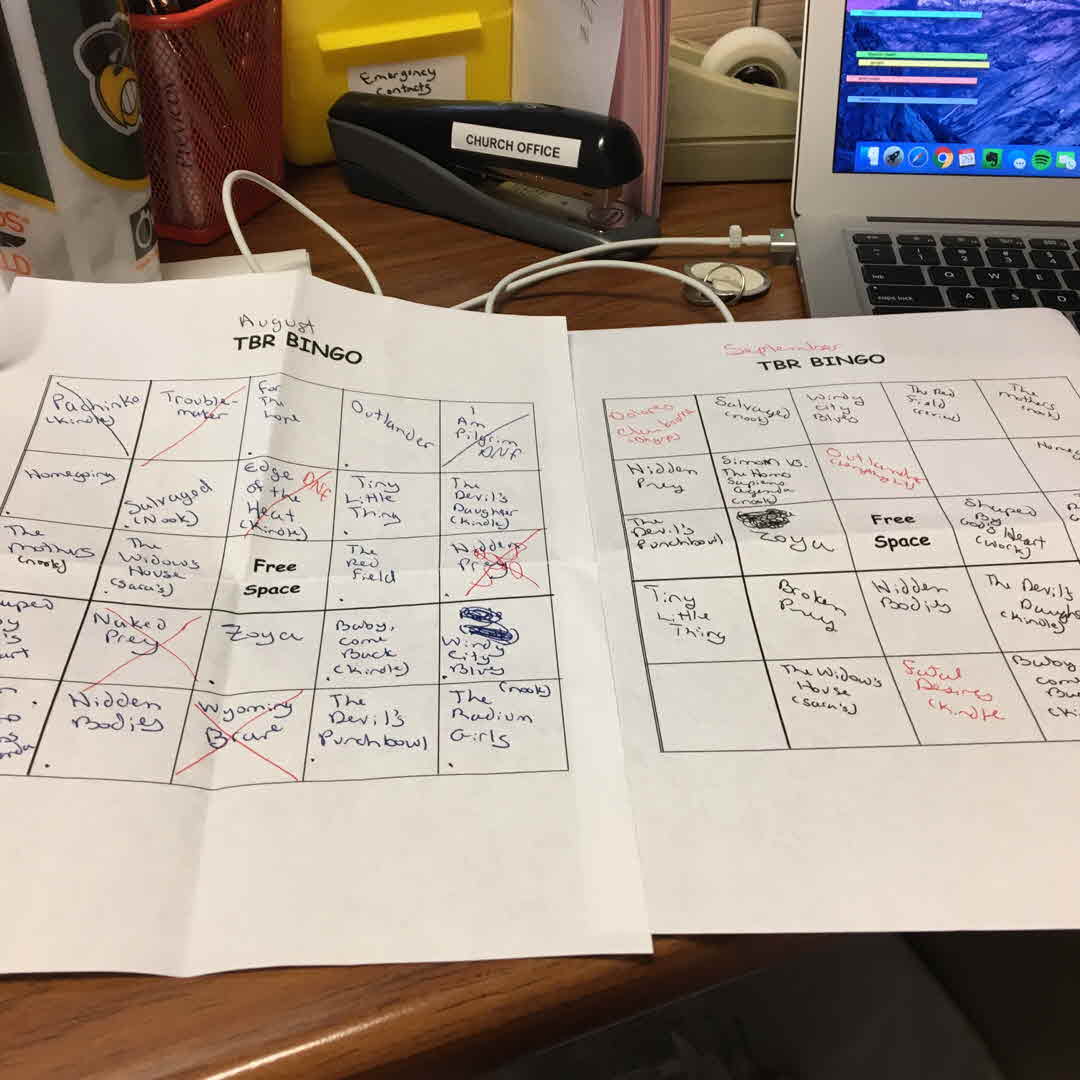 Emergency
Contacts
CHURCH OFFICE
August
TBR BINGO
Pachinko
(Kindle)
Trouble-
maker
For
The
Love
Outlander
I
Am
Pilgrim
DNF
Homegoing
Salvaged
(Nook)
Edge
of the
Heat
(Kindle)
DNF
Tiny
Little
Thing
The
Devil's
Daughter
(Kindle)
The
Mothers
(nook)
The
Widow's
House
(Sara's)
Free
Space
The
Red
Field
Hidden
Prey
Naked
Prey
Zoya
Baby,
Come
Back
(Kindle)
Windy
City
Blues
Hidden
Bodies
Wyoming
Brave
The
Devil's
Punchbowl
The (nook)
Radium
Girls
September
TBR BINGO
Salvaged
(nook)
Windy
City
Blues
The Red
Field
(review)
The
Mothers
(nook)
Hidden
Prey
Simon vs.
The Homo
Sapiens
Agenda
(nook)
The
Devil's
Punchbowl
Zoya
Free
Space
Shaped
By
Good Heart
(Work)
Tiny
Little
Thing
Broken
Prey
Hidden
Bodies
The Devil's
Daughter
(Kindle)
The Widow's
House
(Sara's)
Fatal
Desires
(Kindle
Q
W
E
A
S
D
caps lock